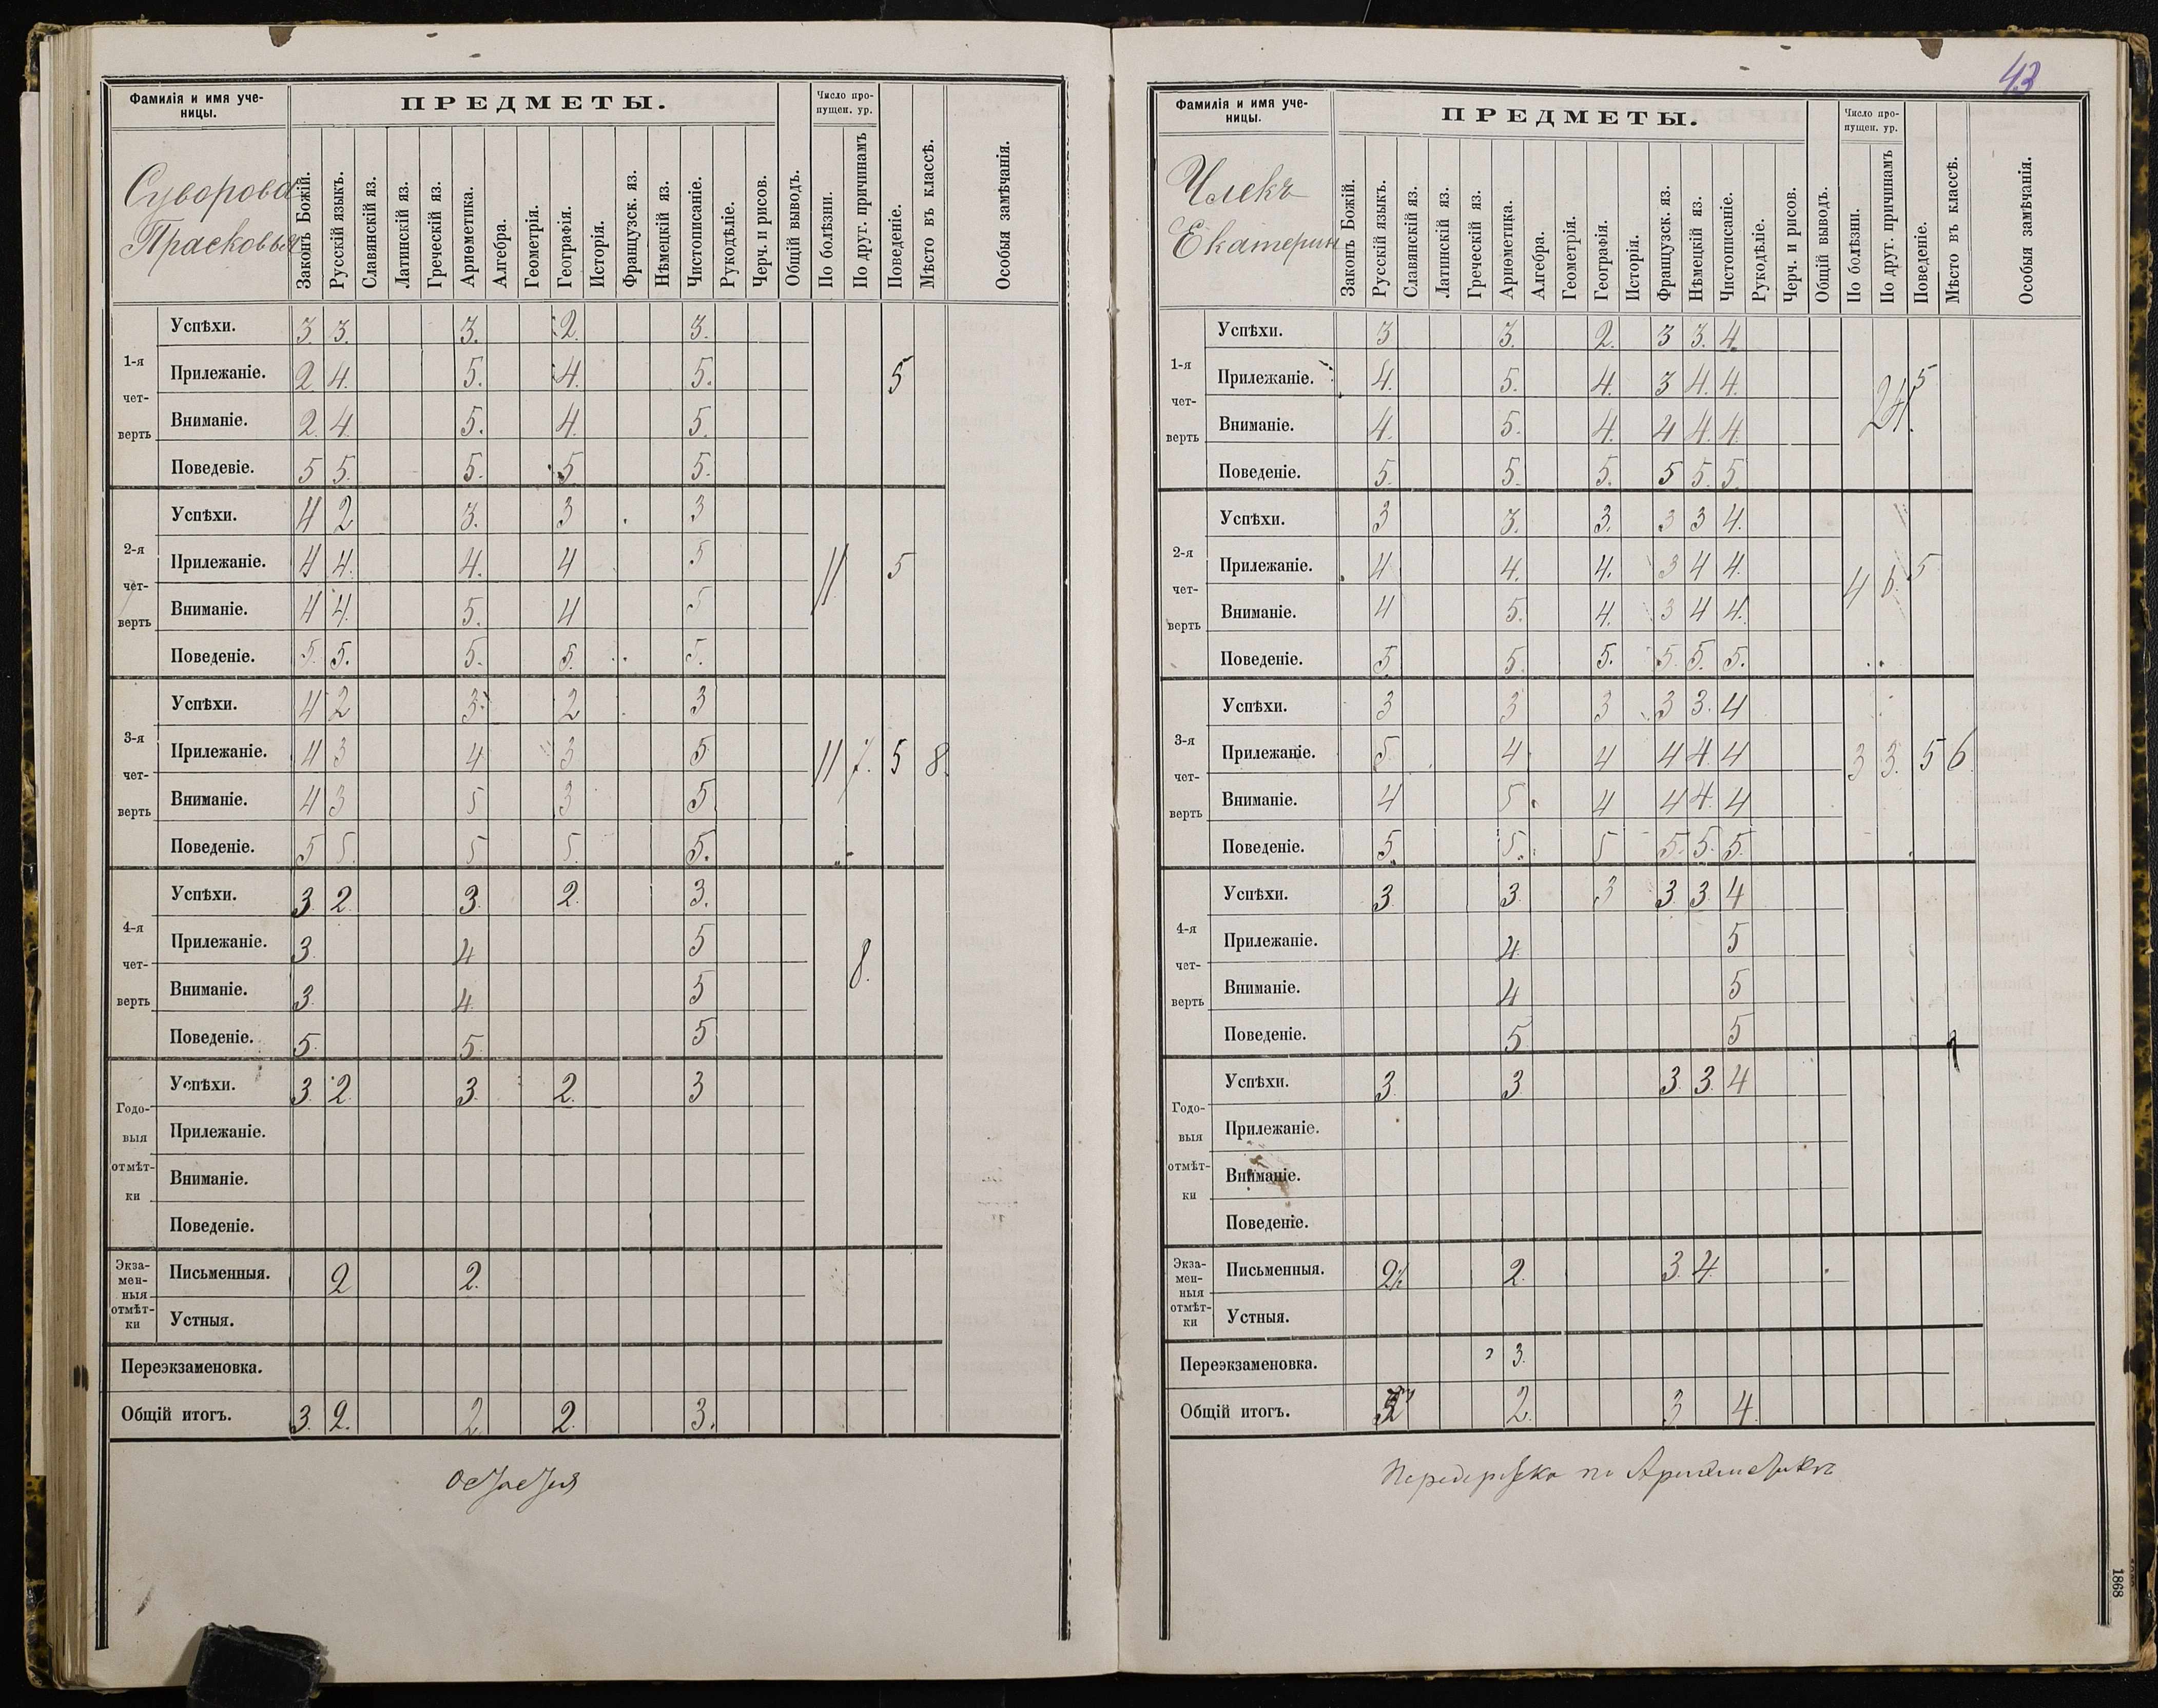 Фамилія и имя уче-
ницы.
ПРЕДМЕТЫ.
Число про-
пущен. ур.
Суворова
Прасковья
Законъ Божій.
Русскій языкъ.
Славянскій яз.
Латинскій яз.
Греческій яз.
Ариѳметика.
Алгебра.
Геометрія.
Географія.
Исторія.
Французск. яз.
Нѣмецкій яз.
Чистописаніе.
Рукодѣліе.
Черч. и рисов.
Общій выводъ.
По болѣзни.
По друг. причинамъ
Поведеніе.
Мѣсто въ классѣ.
Особыя замѣчанія.
1-я
чет-
верть
Успѣхи. 3. 3. 3. 2. 3.
Прилежаніе. 2 4. 5. 4. 5. 5
Вниманіе. 2. 4. 5. 4. 5.
Поведевіе. 5 5. 5. 5. 5.
2-я
чет-
верть
Успѣхи. 4 2 3. 3 3
Прилежаніе. 4 4. 4. 4 5 11 5
Вниманіе. 4 4. 5. 4 5
Поведеніе. 5. 5. 5. 5. 5.
3-я
чет-
верть
Успѣхи. 4 2 3. 2 3
Прилежаніе. 4 3 4 3 5 11 7. 5 8.
Вниманіе. 4 3 5 3 5
Поведеніе. 5 5. 5 5. 5.
4-я
чет-
верть
Успѣхи. 3. 2. 3. 2. 3.
Прилежаніе. 3 4 5 8.
Вниманіе. 3. 4. 5
Поведеніе. 5. 5. 5
Годо-
выя
отмѣт-
ки
Успѣхи. 3. 2. 3. 2. 3
Прилежаніе.
Вниманіе.
Поведеніе.
Экза-
мен-
ныя
отмѣт-
ки
Письменныя. 2 2.
Устныя.
Переэкзаменовка.
Общій итогъ. 3. 2. 2. 2. 3.
Остается
43
Фамилія и имя уче-
ницы.
ПРЕДМЕТЫ.
Число про-
пущен. ур.
Екатерин
Законъ Божій.
Русскій языкъ.
Славянскій яз.
Латинскій яз.
Греческій яз.
Ариѳметика.
Алгебра.
Геометрія.
Географія.
Исторія.
Французск. яз.
Нѣмецкій яз.
Чистописаніе.
Рукодѣліе.
Черч. и рисов.
Общій выводъ.
По болѣзни.
По друг. причинамъ
Поведеніе.
Мѣсто въ классѣ.
Особыя замѣчанія.
1-я
чет-
верть
Успѣхи. 3 3. 2. 3 3. 4.
Прилежаніе. 4. 5. 4. 3 4. 4. 24. 5
Вниманіе. 4. 5. 4. 4 4. 4.
Поведеніе. 5. 5. 5. 5 5. 5.
2-я
чет-
верть
Успѣхи. 3 3. 3. 3 3 4.
Прилежаніе. 4 4. 4. 3 4 4. 4 6. 5
Вниманіе. 4 5. 4. 3 4 4.
Поведеніе. 5. 5. 5. 5. 5. 5.
3-я
чет-
верть
Успѣхи. 3 3 3 3 3. 4
Прилежаніе. 5. 4 4 4 4. 4 3 3. 5 6.
Вниманіе. 4 5. 4 4 4. 4
Поведеніе. 5. 5. 5 5. 5. 5.
4-я
чет-
верть
Успѣхи. 3. 3. 3 3. 3. 4
Прилежаніе. 4. 5
Вниманіе. 4 5
Поведеніе. 5 5
Годо-
выя
отмѣт-
ки
Успѣхи. 3. 3 3. 3. 4
Прилежаніе.
Вниманіе.
Поведеніе.
Экза-
мен-
ныя
отмѣт-
ки
Письменныя. 2½ 2. 3. 4.
Устныя.
Переэкзаменовка. 3.
Общій итогъ. 2. 3 4.
Передержка по Ариѳметикѣ
1868